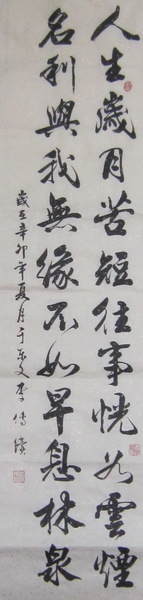 人生歲月苦短往事恍若雲煙
名利與我無緣不如早息林泉
歲在辛卯年夏月于东文李传绩